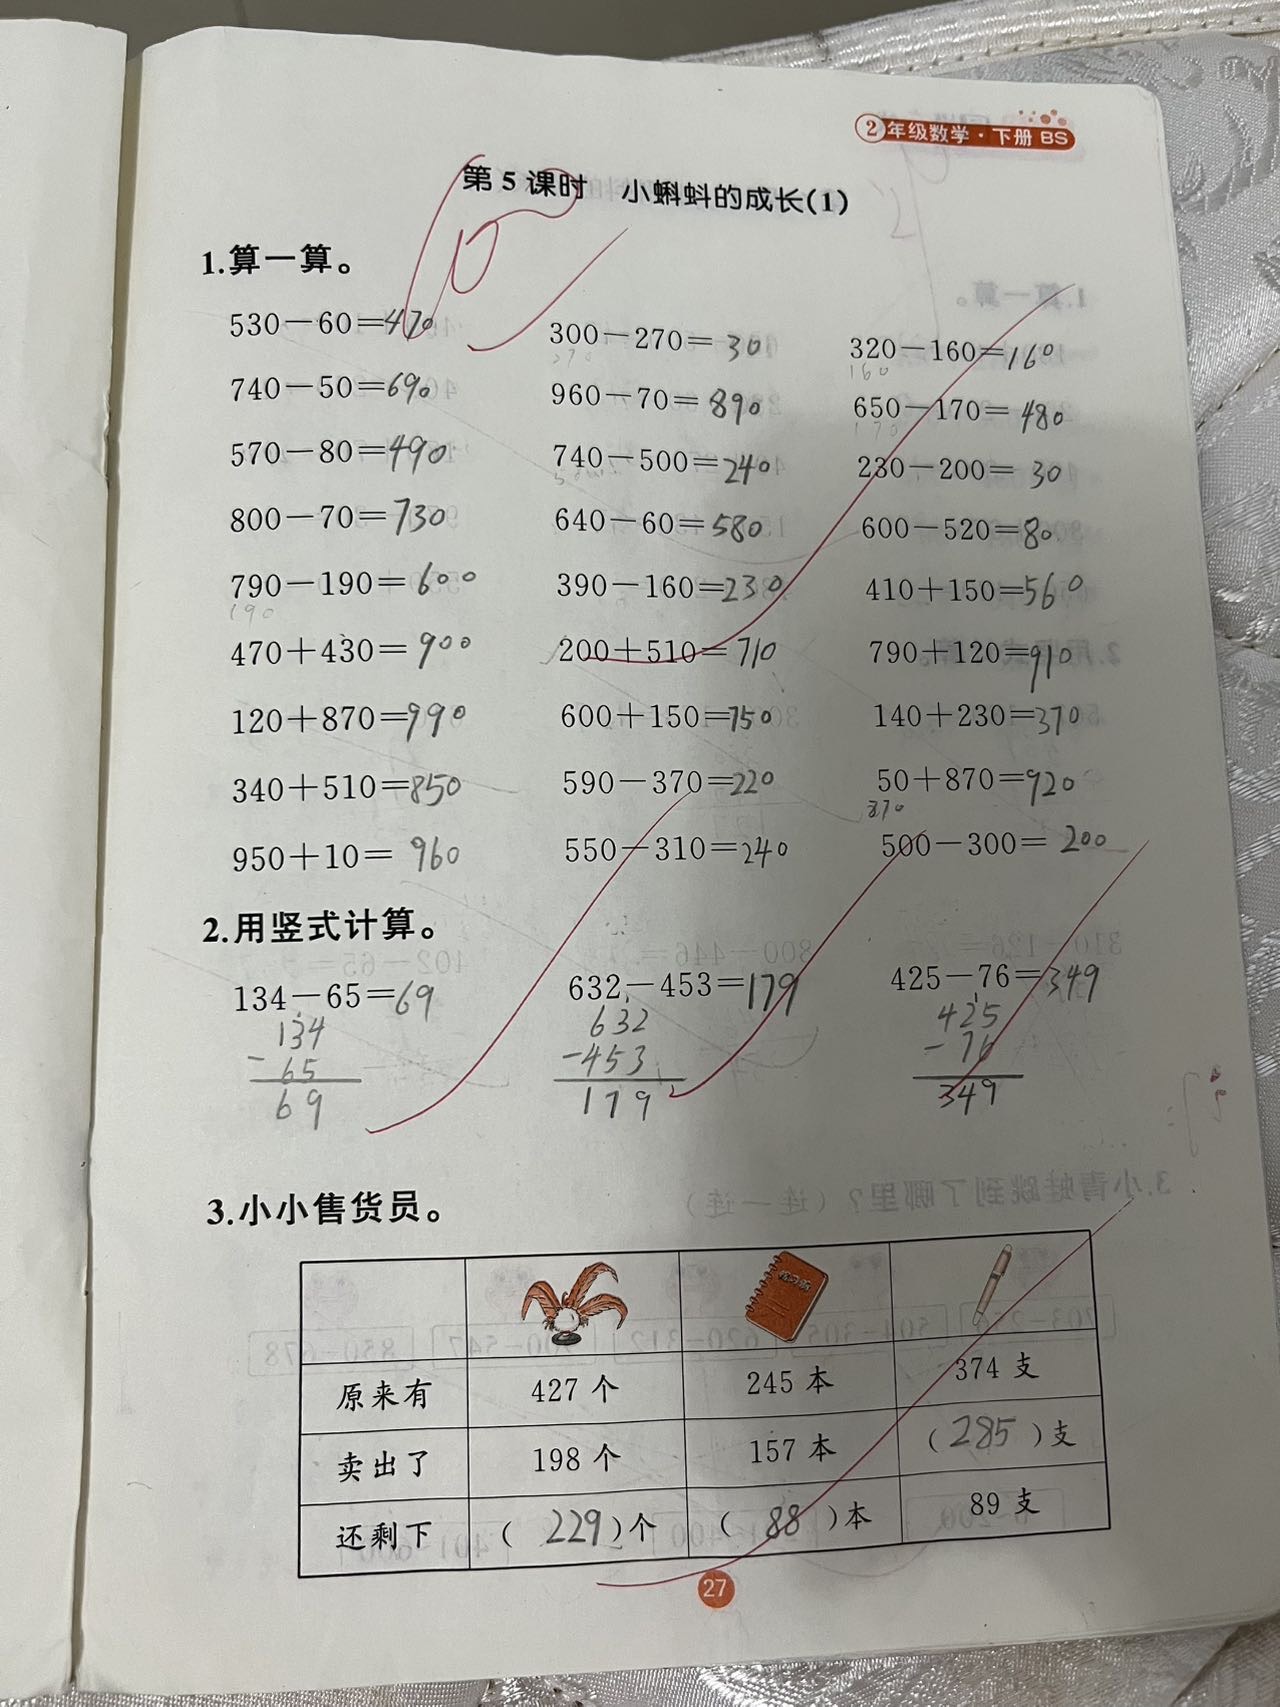 2年级数学·下册 BS
第5课时 小蝌蚪的成长(1)
1.算一算。
530－60=470 300－270=30 320－160=160
270 160
740－50=690 960－70=890 650－170=480
170
570－80=490 740－500=240 230－200=30
500
800－70=730 640－60=580 600－520=80
790－190=600 390－160=230 410+150=560
190
470+430=900 200+510=710 790+120=910
120+870=990 600+150=750 140+230=370
340+510=850 590－370=220 50+870=920
870
950+10=960 550－310=240 500－300=200
2.用竖式计算。
134－65=69 632－453=179 425－76=349
134 632 425
－65 －453 －76
69 179 349
3.小小售货员。
原来有 427个 245本 374支
卖出了 198个 157本 (285)支
还剩下 (229)个 (88)本 89支
27